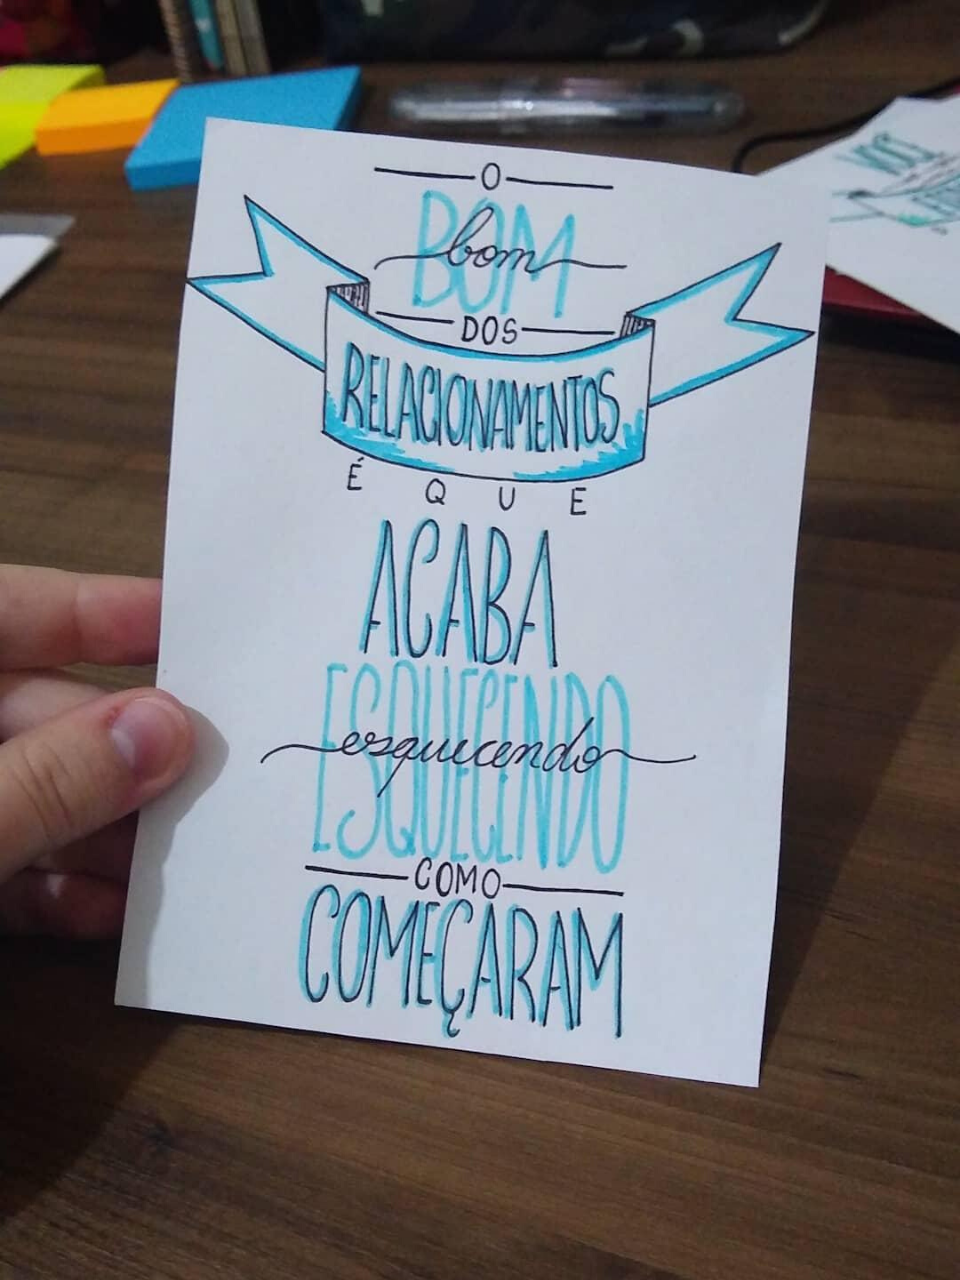 O
BOM
bom
DOS
RELACIONAMENTOS
É QUE
ACABA
ESQUECENDO
esquecendo
COMO
COMEÇARAM
VOCÊ